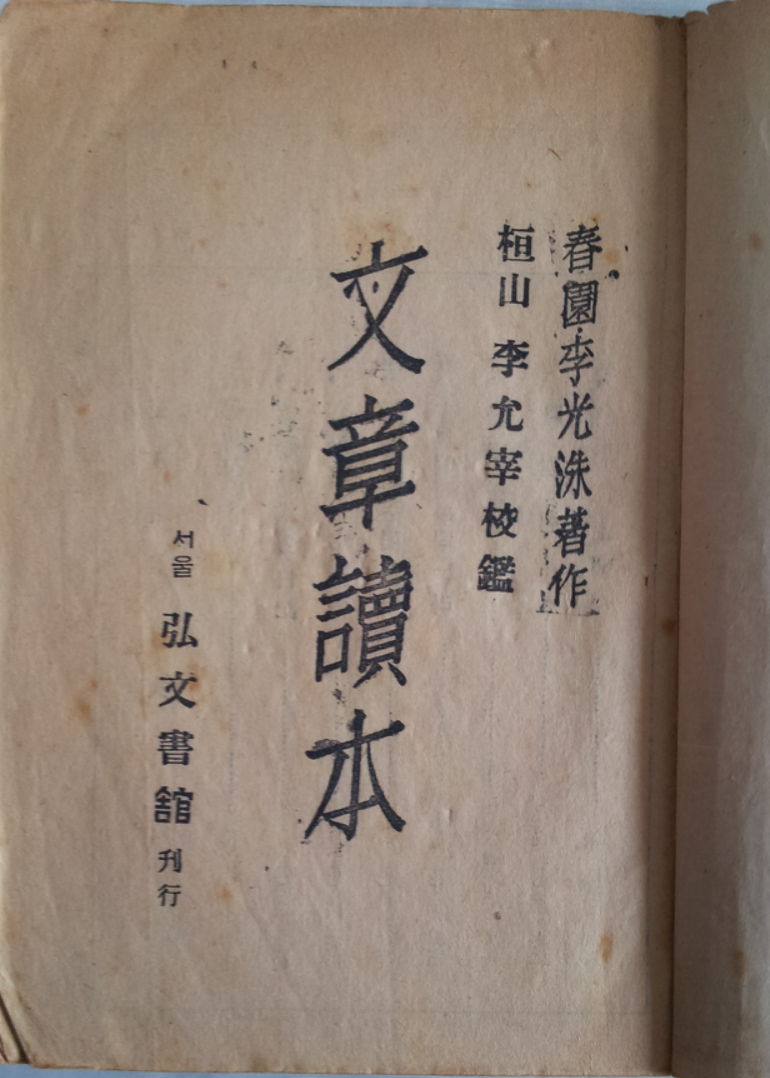 春園 李光洙 著作
桓山 李允宰 校鑑
文章讀本
서울 弘文書舘 刊行